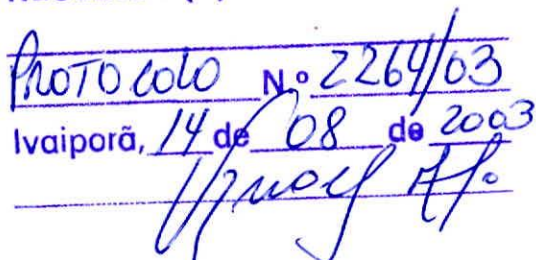 PROTOCOLO N.º 2264/03
Ivaiporã, 14 de 08 de 2003